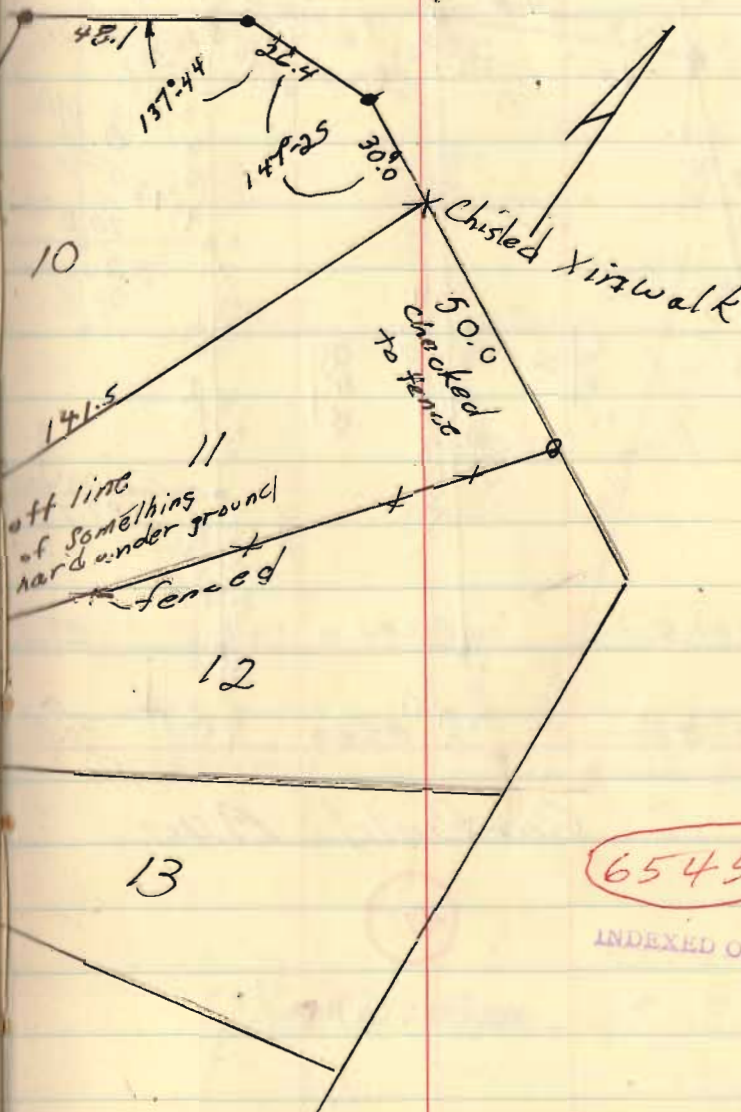 48.1
26.4
137°-44
147-25
30.0
Chisled X in walk
10
50.0
checked
to fence
141.5
11
off line
of something
hard under ground
fenced
12
13
INDEXED O